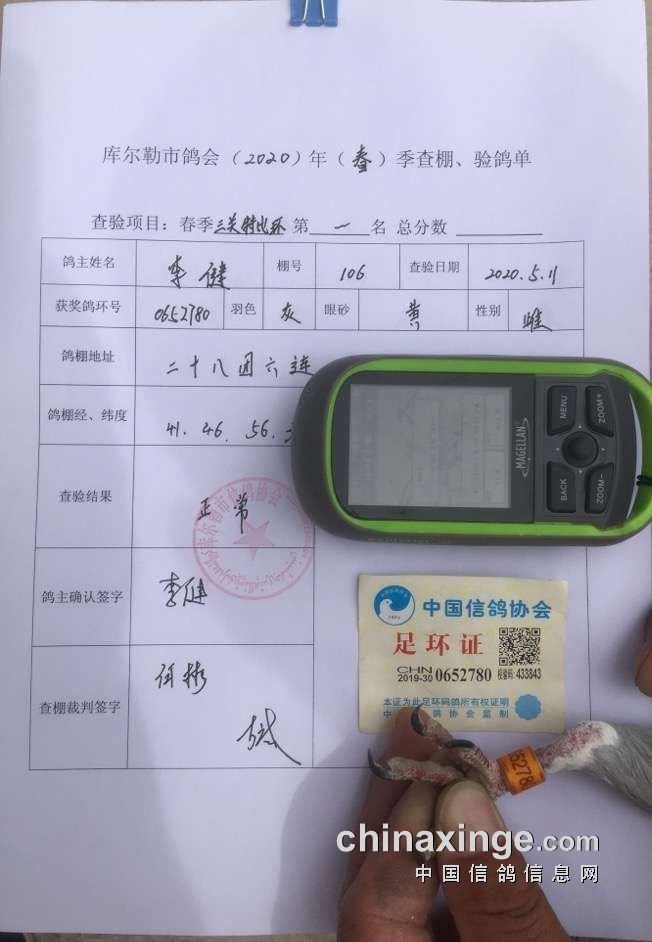 库尔勒市鸽会（2020）年（春）季查棚、验鸽单
查验项目：春季三关特比环 第 一 名 总分数
鸽主姓名 李健 棚号 106 查验日期 2020.5.11
获奖鸽环号 0652780 羽色 灰 眼砂 黄 性别 雌
鸽棚地址 二十八团六连
鸽棚经、纬度 41.46.56.
查验结果 正常
库尔勒市信鸽协会
鸽主确认签字 李健
查棚裁判签字 任彬
MAGELLAN
MENU
ZOOM+
BACK
ZOOM-
中国信鸽协会
足环证
CHN
2019-30 0652780 校验码: 433843
本证为此足环码鸽所有权证明
中 鸽协会监制
5278
chinaxinge.com
中国信鸽信息网